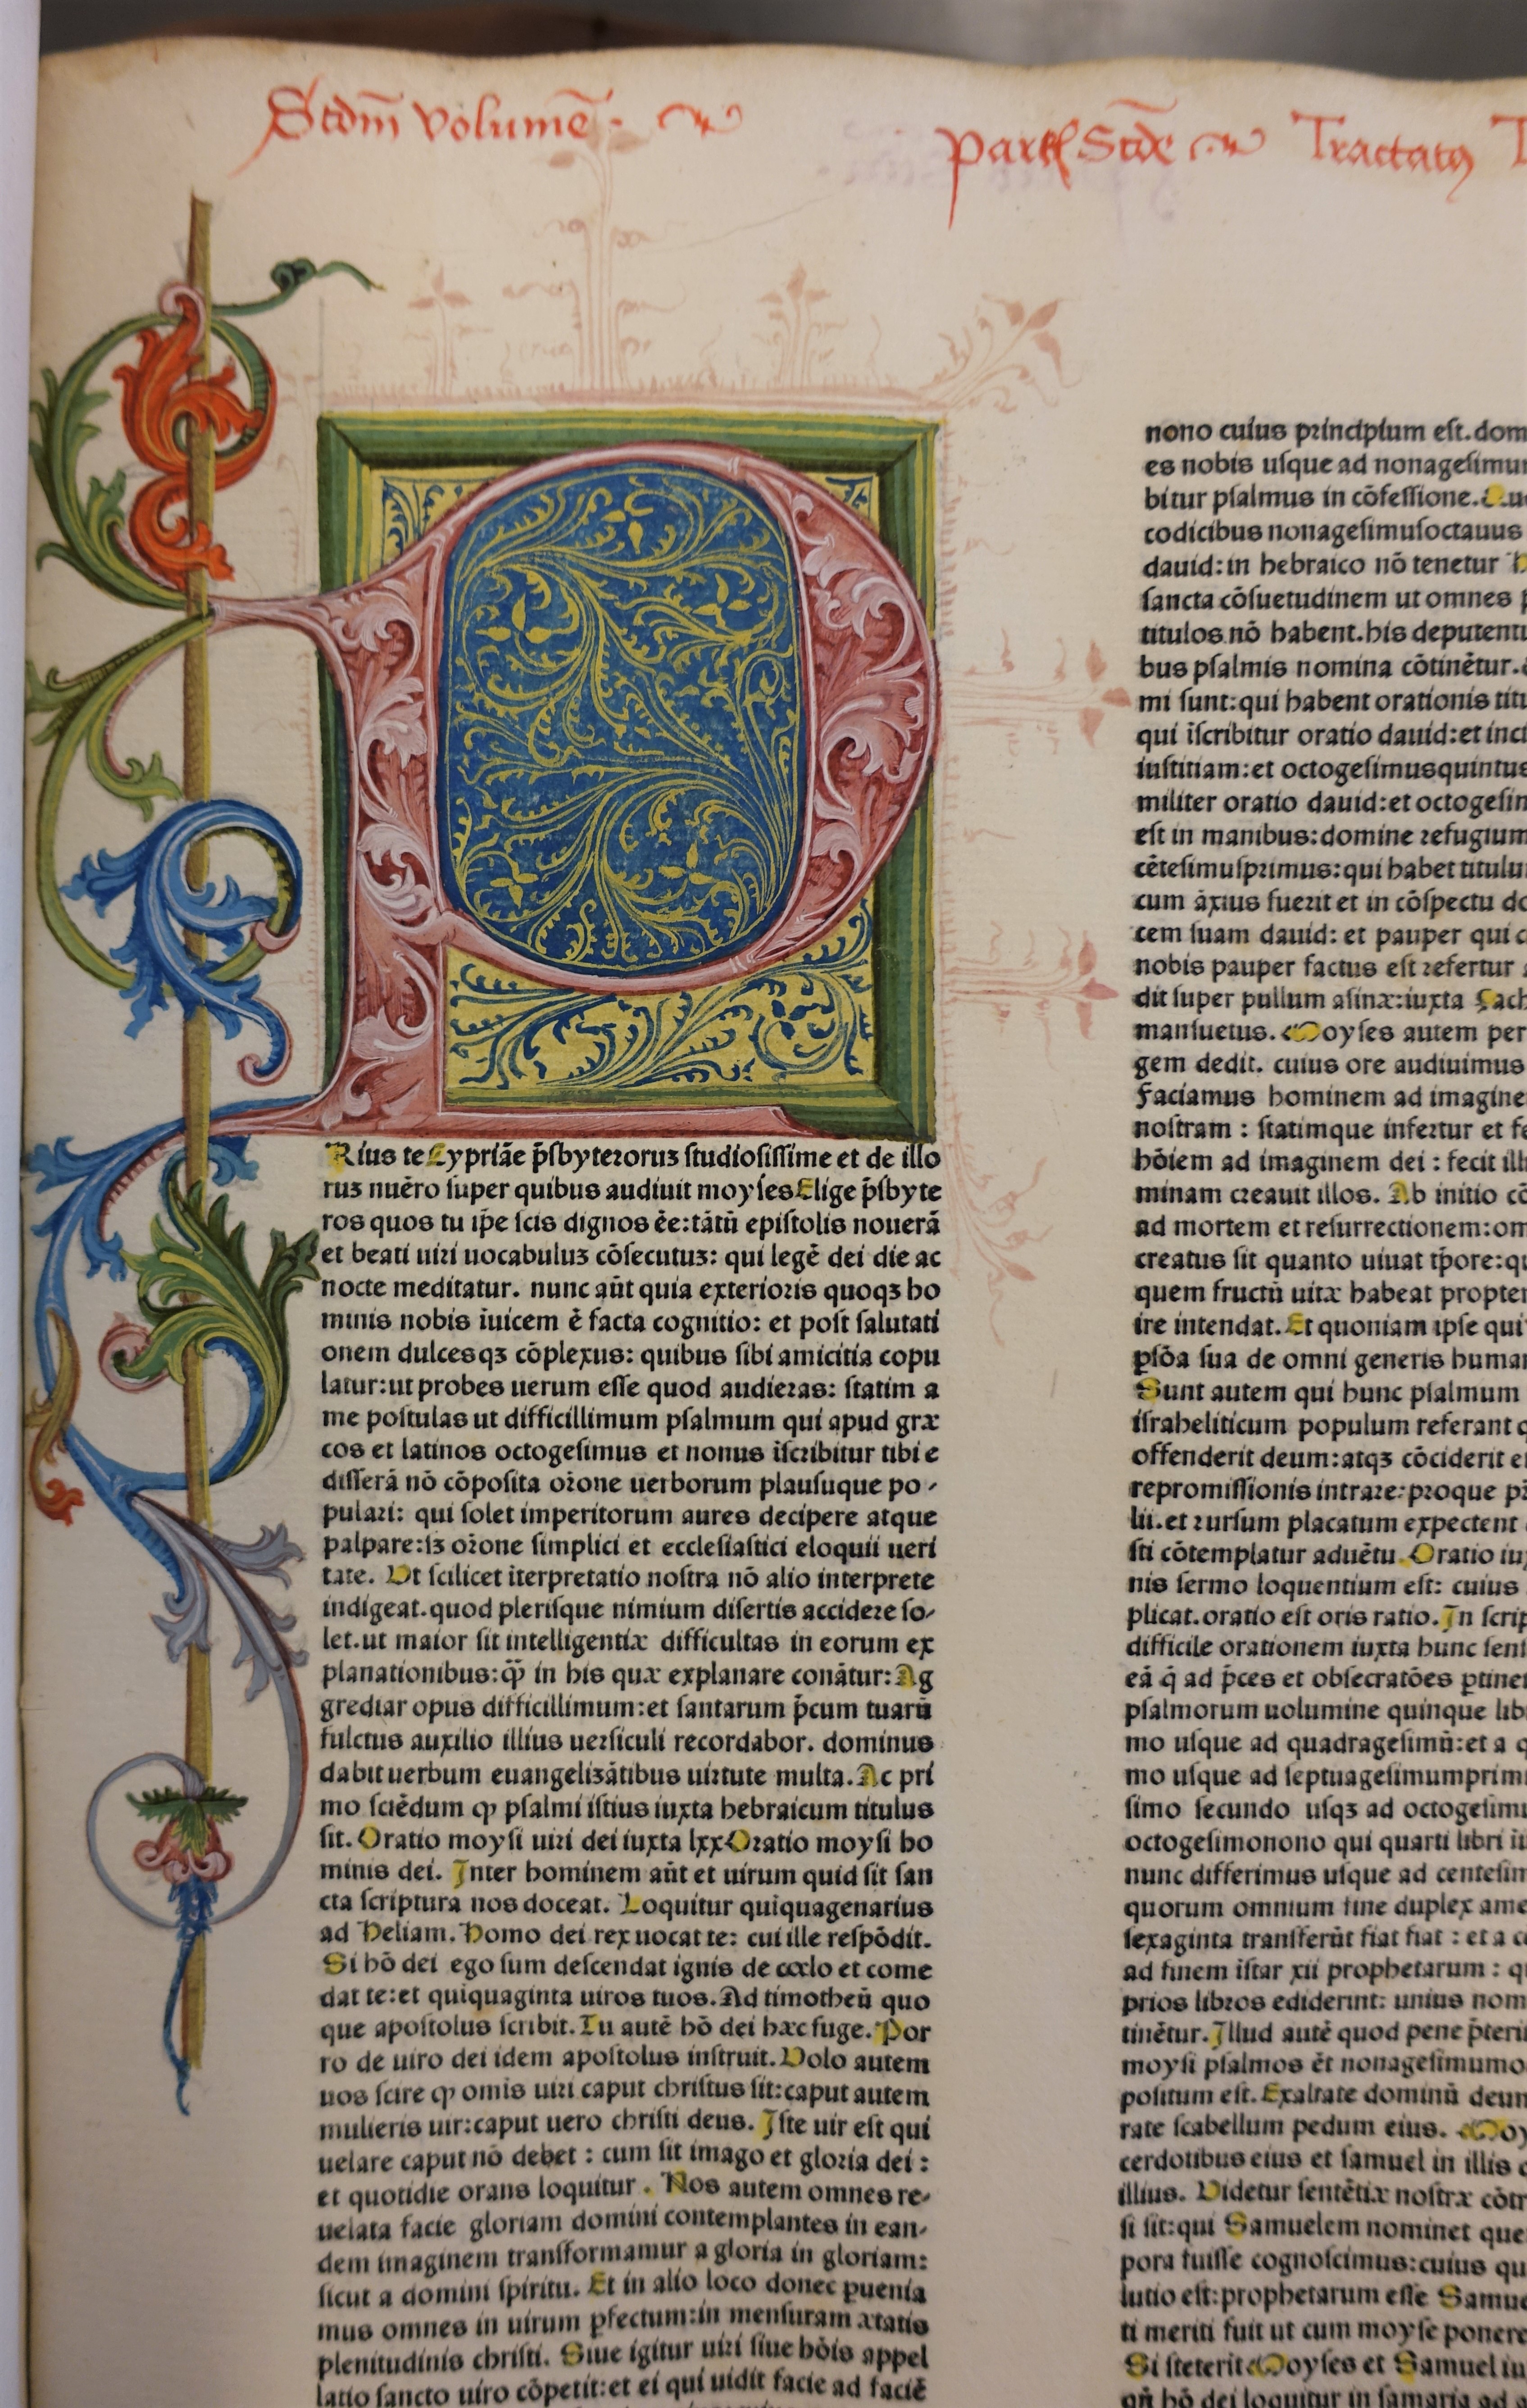 Scdm̄ volumē.
Partꝭ Scd̄e Tractatꝰ
P
Rius te Cypriāe p̄sbyteroꝝ studiosissime et de illo
ruꝫ nuēro super quibus audiuit moyses Elige p̄sbyte
ros quos tu ip̄e scis dignos ēe: tātū epistolis nouerā
et beati uiri uocabuluꝫ cōsecutuꝫ: qui legē dei die ac
nocte meditatur. nunc aūt quia exterioris quoqꝫ ho
minis nobis iuicem ē facta cognitio: et post salutati
onem dulcesqꝫ cōplexus: quibus sibi amicitia copu
latur: ut probes uerum esse quod audieras: statim a
me postulas ut difficillimum psalmum qui apud græ
cos et latinos octogesimus et nonus īscribitur tibi e
disserā nō cōposita or̄one uerborum plausuque po-
pulari: qui solet imperitorum aures decipere atque
palpare: sꝫ or̄one simplici et ecclesiastici eloquii ueri
tate. Ut scilicet īterpretatio nostra nō alio interprete
indigeat. quod plerisque nimium disertis accidere so-
let. ut maior sit intelligentiæ difficultas in eorum ex
planationibus: ꝙ̄ in his quæ explanare conātur: Ag
grediar opus difficillimum: et santarum p̄cum tuarū
fulctus auxilio illius uersiculi recordabor. dominus
dabit uerbum euangelizātibus uirtute multa. Ac pri
mo sciēdum ꝙ psalmi istius iuxta hebraicum titulus
sit. Oratio moysi uiri dei iuxta lxx Oratio moysi ho
minis dei. Inter hominem aūt et uirum quid sit san
cta scriptura nos doceat. Loquitur quiquagenarius
ad Heliam. Homo dei rex uocat te: cui ille respōdit.
Si hō dei ego sum descendat ignis de cœlo et come
dat te: et quiquaginta uiros tuos. Ad timotheū quo
que apostolus scribit. Tu autē hō dei hæc fuge. Por
ro de uiro dei idem apostolus instruit. Volo autem
uos scire ꝙ omis uiri caput christus sit: caput autem
mulieris uir: caput uero christi deus. Iste uir est qui
uelare caput nō debet: cum sit imago et gloria dei:
et quotidie orans loquitur. Nos autem omnes re-
uelata facie gloriam domini contemplantes in ean-
dem imaginem transformamur a gloria in gloriam:
sicut a domini spiritu. Et in alio loco donec ꝑuenia
mus omnes in uirum ꝑfectum: in mensuram ætatis
plenitudinis christi. Siue igitur uiri siue hōis appel
latio sancto uiro cōpetit: et ei qui uidit facie ad faciē
nono cuius principium est. dom
es nobis usque ad nonagesimu
bitur psalmus in cōfessione.
codicibus nonagesimusoctauus
dauid: in hebraico nō tenetur
sancta cōsuetudinem ut omnes
titulos nō habent. his deputentu
bus psalmis nomina cōtinētur.
mi sunt: qui habent orationis titu
qui īscribitur oratio dauid: et inci
iustitiam: et octogesimusquintus
militer oratio dauid: et octogesim
est in manibus: domine refugium
cētesimusprimus: qui habet titulu
cum āxius fuerit et in cōspectu do
cem suam dauid: et pauper qui
nobis pauper factus est refertur
dit super pullum asinæ: iuxta Zach
mansuetus. Moyses autem per
gem dedit. cuius ore audiuimus
Faciamus hominem ad imagine
nostram: statimque infertur et fe
hōiem ad imaginem dei: fecit ill
minam creauit illos. Ab initio
ad mortem et resurrectionem: om
creatus sit quanto uiuat tp̄ore: q
quem fructū uitæ habeat propter
ire intendat. Et quoniam ipse qui
ꝑsōa sua de omni generis human
Sunt autem qui hunc psalmum
israheliticum populum referant
offenderit deum: atqꝫ cōciderit
repromissionis intrare: proque
lii. et rursum placatum expectent
sti cōtemplatur aduētu. Oratio iu
nis sermo loquentium est: cuius
plicat. oratio est oris ratio. In scrip
difficile orationem iuxta hunc sen
eā q̄ ad p̄ces et obsecratōes ꝑtinet
psalmorum uolumine quinque lib
mo usque ad quadragesimū: et a
mo usque ad septuagesimumprim
simo secundo usqꝫ ad octogesimu
octogesimonono qui quarti libri
nunc differimus usque ad centesim
quorum omnium fine duplex ame
sexaginta transferūt fiat fiat: et a
ad finem istar xii prophetarum:
prios libros ediderint: unius nom
tinētur. Illud autē quod pene p̄teri
moysi psalmos ēt nonagesimumo
positum est. Exaltate dominū deum
rate scabellum pedum eius. Moy
cerdotibus eius et samuel in illis
illius. Videtur sentētiæ nostræ cōtr
si sit: qui Samuelem nominet que
pora fuisse cognoscimus: cuius
lutio est: prophetarum esse Samue
ti meriti fuit ut cum moyse ponere
Si steterit Moyses et Samuel
qn̄ hō dei loquitur in samaria ad